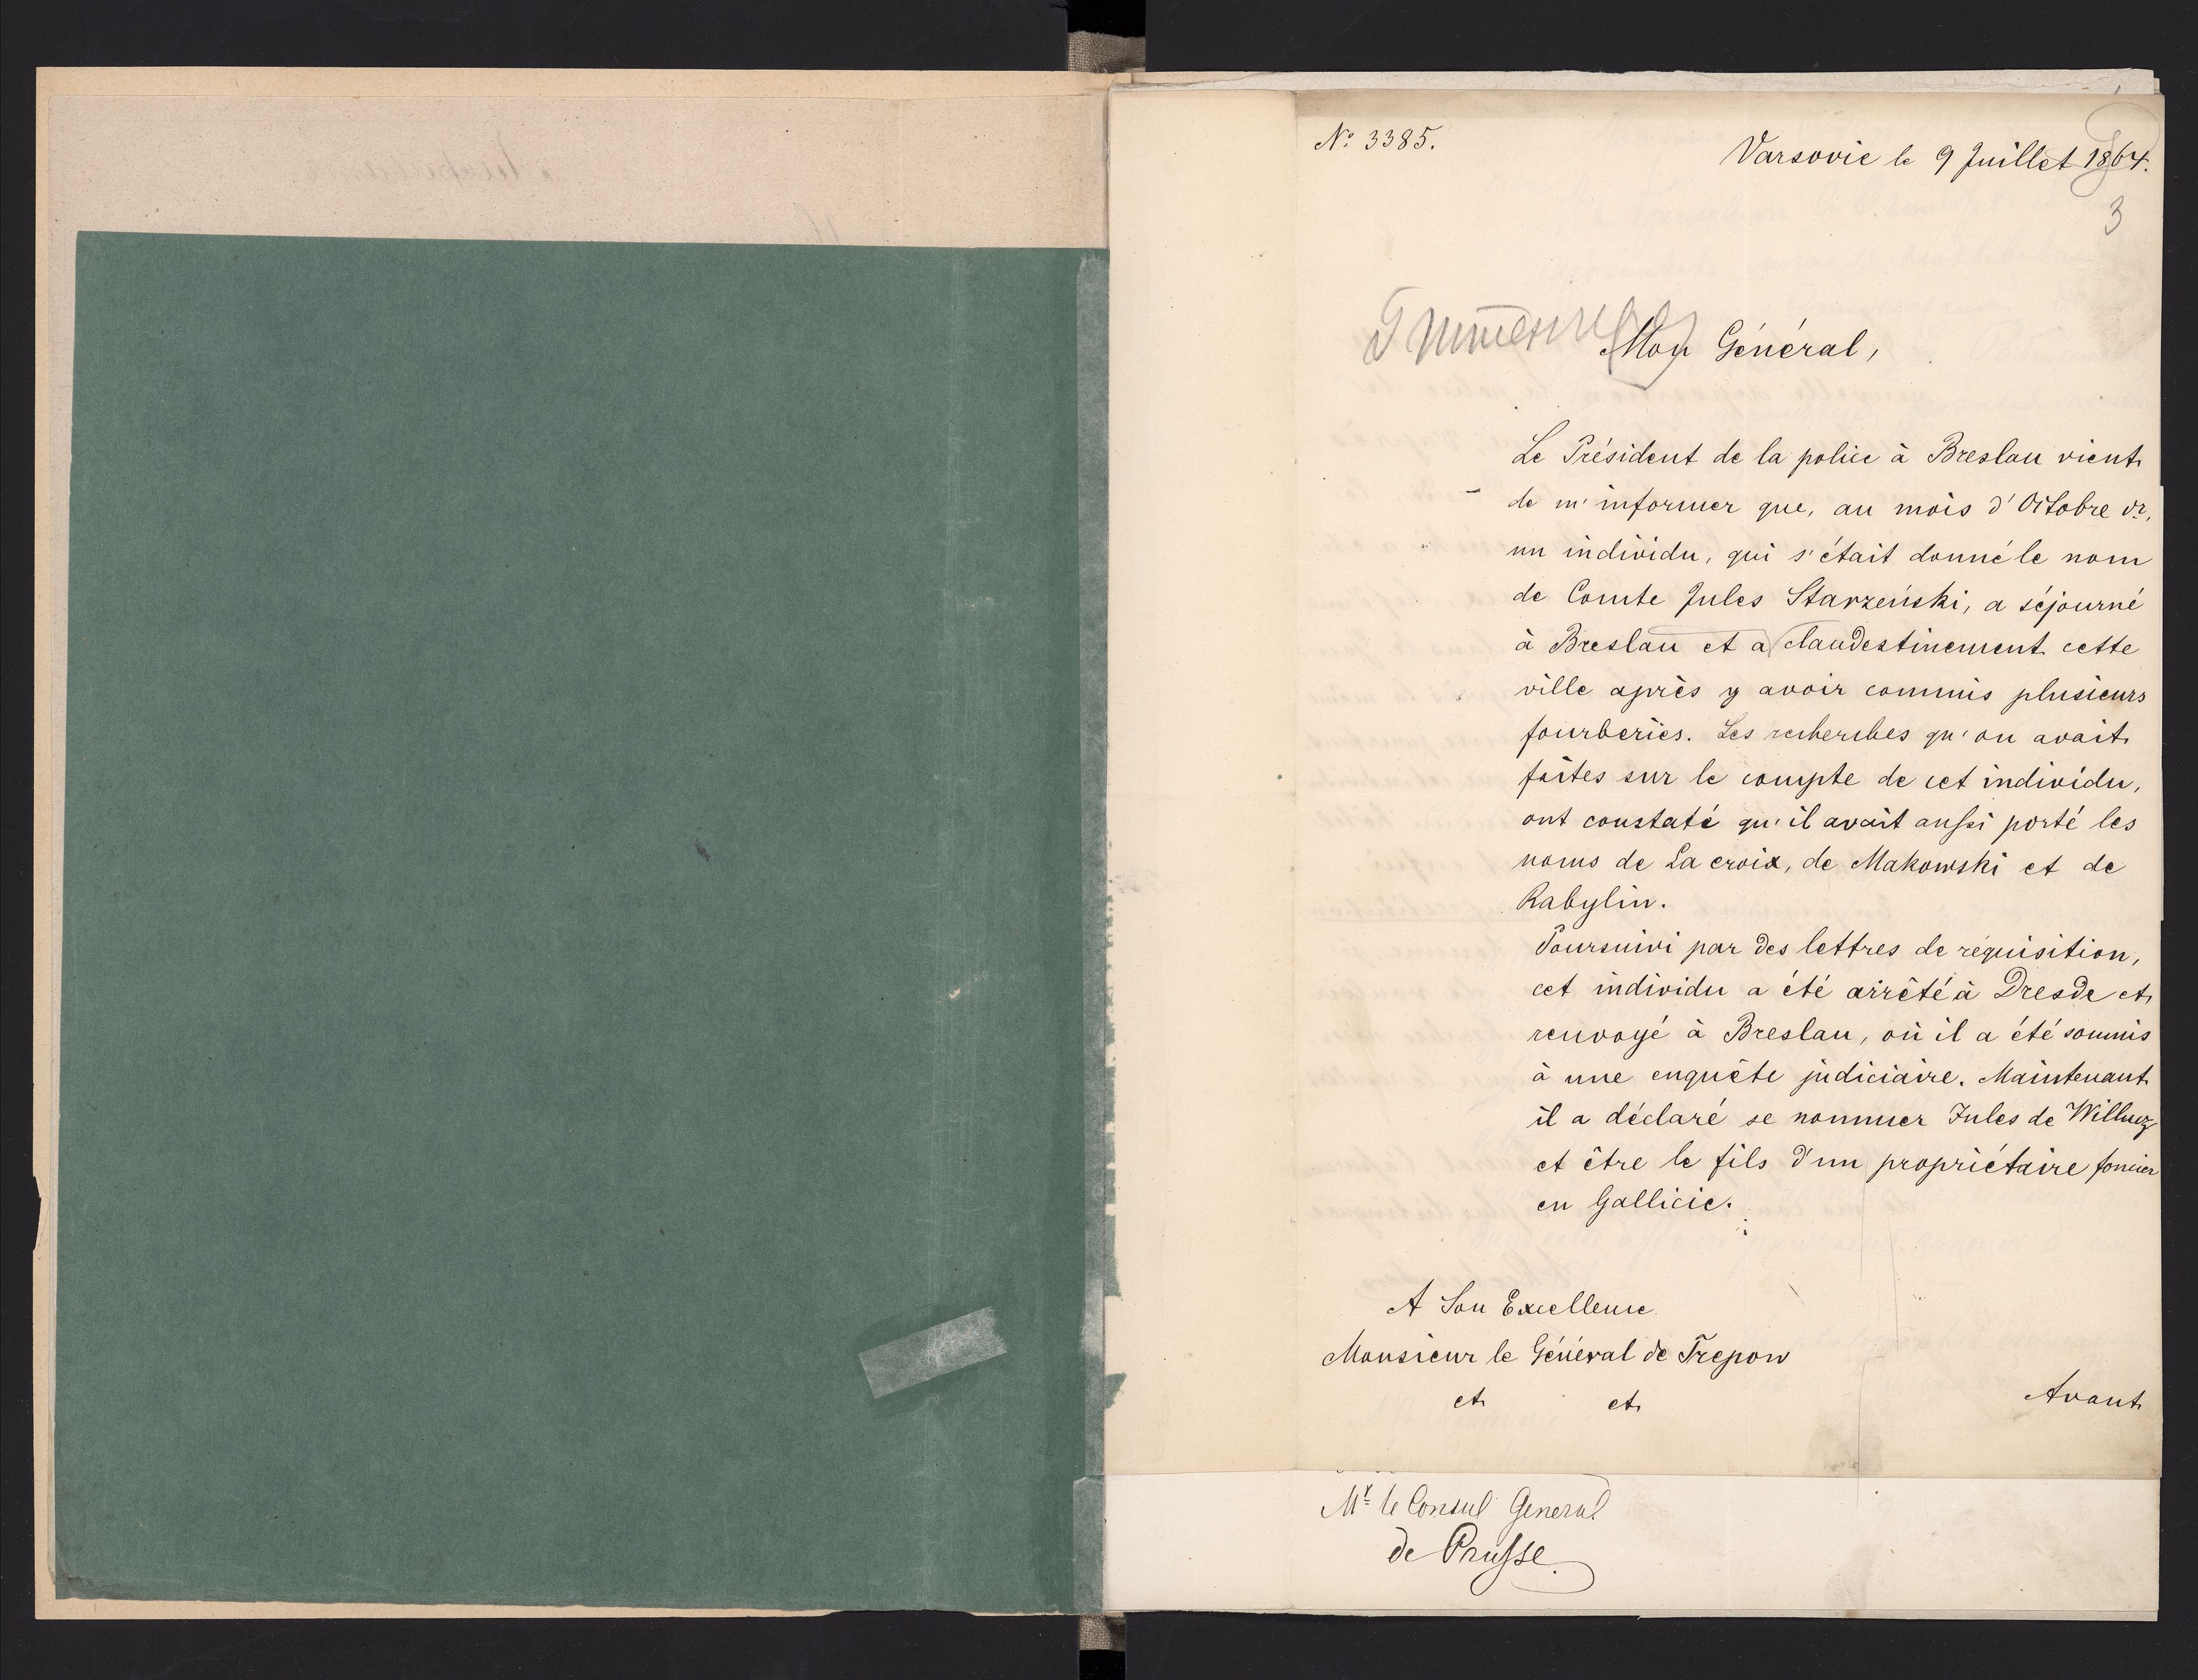 Nº 3385.
Varsovie le 9 Juillet 1864.
3
Mon Général,
Le Président de la police à Breslau vient
de m'informer que, au mois d'Octobre dr,
un individu, qui s'était donné le nom
de Comte Jules Starzeński, a séjourné
à Breslau et a clandestinement cette
ville après y avoir commis plusieurs
fourberies. Les recherches qu'on avait
faites sur le compte de cet individu,
ont constaté qu'il avait aussi porté les
noms de La croix, de Makowski et de
Rabylin.
Poursuivi par des lettres de réquisition,
cet individu a été arrêté à Dresde et
renvoyé à Breslau, où il a été soumis
à une enquête judiciaire. Maintenant
il a déclaré se nommer Jules de
et être le fils d'un propriétaire foncier
en Gallicie.
A Son Excellence
Monsieur le Général de Trepow
et et
Avant
Mr le Consul General
de Prusse.